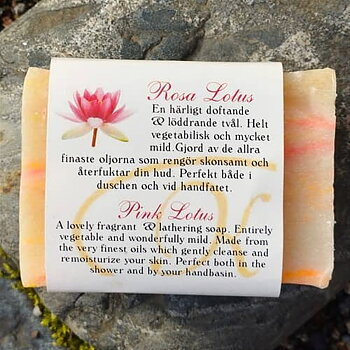 Rosa Lotus
En härligt doftande
& löddrande tvål. Helt
vegetabilisk och mycket
mild.Gjord av de allra
finaste oljorna som rengör skonsamt och
återfuktar din hud. Perfekt både i
duschen och vid handfatet.
Pink Lotus
A lovely fragrant & lathering soap. Entirely
vegetable and wonderfully mild. Made from
the very finest oils which gently cleanse and
remoisturize your skin. Perfect both in the
shower and by your handbasin.